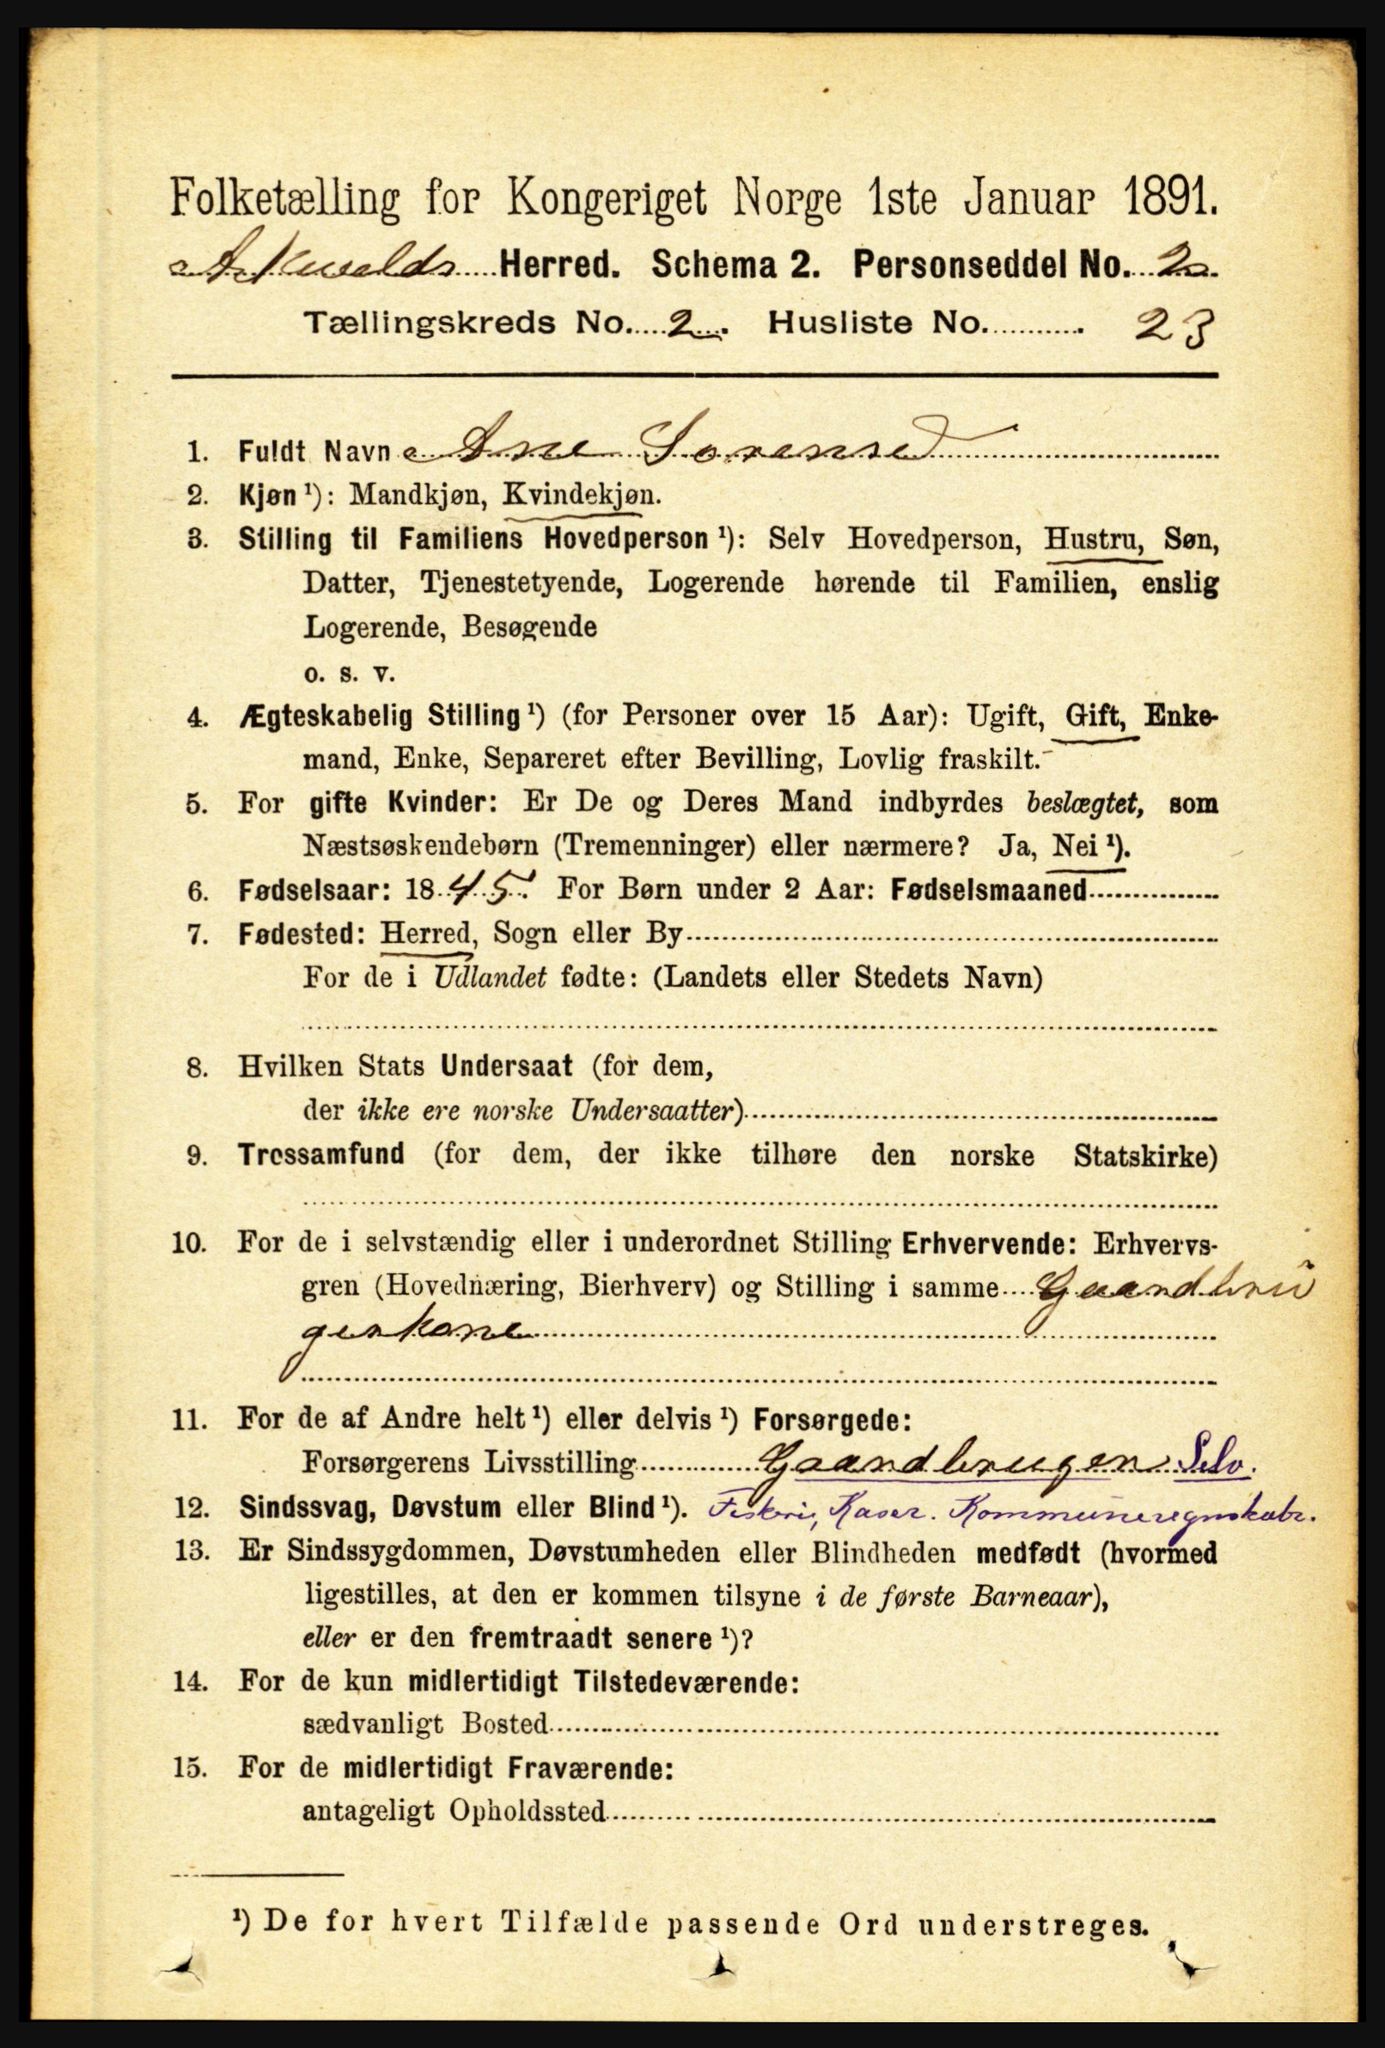 Folketælling for Kongeriget Norge 1ste Januar 1891.
Askvolds Herred. Schema 2. Personseddel No. 2.
Tællingskreds No. 2. Husliste No. 23
1. Fuldt Navn Ane Sørensd
2. Kjøn ¹): Mandkjøn, Kvindekjøn.
3. Stilling til Familiens Hovedperson ¹): Selv Hovedperson, Hustru, Søn,
Datter, Tjenestetyende, Logerende hørende til Familien, enslig
Logerende, Besøgende
o. s. v.
4. Ægteskabelig Stilling ¹) (for Personer over 15 Aar): Ugift, Gift, Enke-
mand, Enke, Separeret efter Bevilling, Lovlig fraskilt.
5. For gifte Kvinder: Er De og Deres Mand indbyrdes beslægtet, som
Næstsøskendebørn (Tremenninger) eller nærmere? Ja, Nei ¹).
6. Fødselsaar: 1845. For Børn under 2 Aar: Fødselsmaaned
7. Fødested: Herred, Sogn eller By
For de i Udlandet fødte: (Landets eller Stedets Navn)
8. Hvilken Stats Undersaat (for dem,
der ikke ere norske Undersaatter)
9. Trossamfund (for dem, der ikke tilhøre den norske Statskirke)
10. For de i selvstændig eller i underordnet Stilling Erhvervende: Erhvervs-
gren (Hovednæring, Bierhverv) og Stilling i samme Gaardbru
gerkone
11. For de af Andre helt ¹) eller delvis ¹) Forsørgede:
Forsørgerens Livsstilling Gaardbruger Selv.
12. Sindssvag, Døvstum eller Blind ¹). Fiskeri, Kaser. Kommuneregnskab.
13. Er Sindssygdommen, Døvstumheden eller Blindheden medfødt (hvormed
ligestilles, at den er kommen tilsyne i de første Barneaar),
eller er den fremtraadt senere ¹)?
14. For de kun midlertidigt Tilstedeværende:
sædvanligt Bosted
15. For de midlertidigt Fraværende:
antageligt Opholdssted
¹) De for hvert Tilfælde passende Ord understreges.